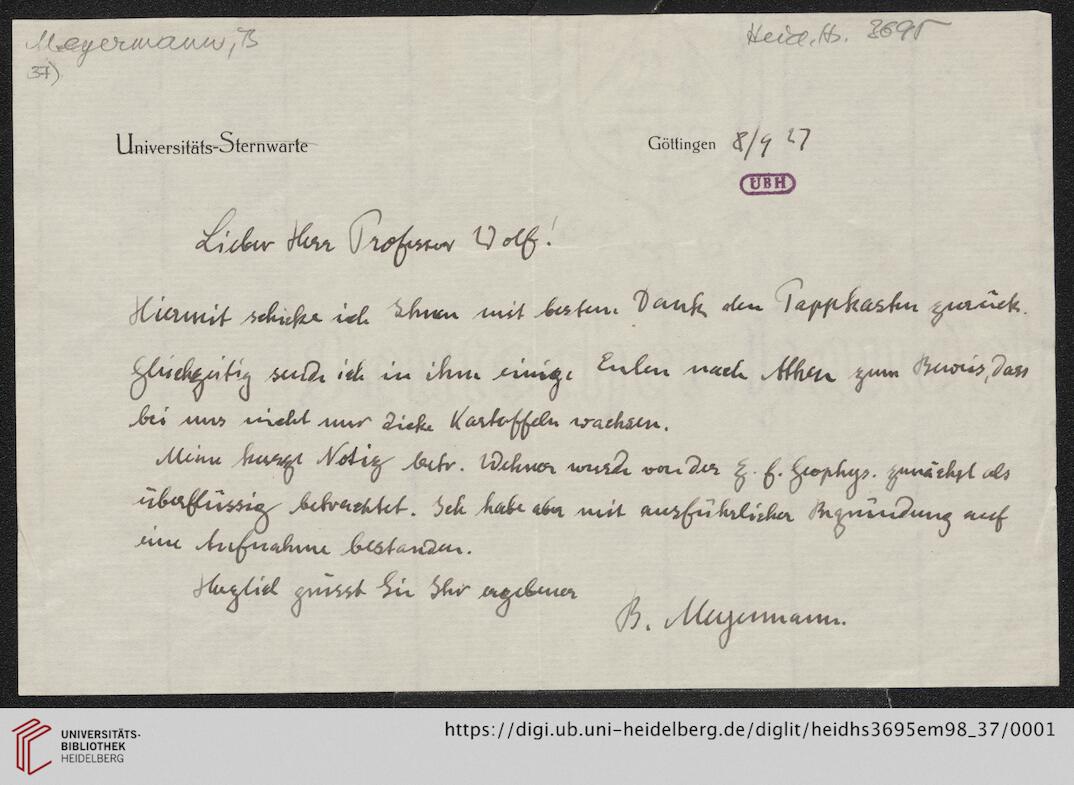 Meyermann, B
37)
Heid. Hs. 3695
Universitäts-Sternwarte
Göttingen 8/9 27
UBH
Lieber Herr Professor Wolf!
Hiermit schicke ich Ihnen mit bestem Dank den Tappkasten zurück.
Gleichzeitig sende ich in ihm einige Eulen nach Athen zum Beweis, dass
bei uns nicht nur dicke Kartoffeln wachsen.
Meine kurze Notiz betr. Wehner wurde von der Z. f. Geophys. zunächst als
überflüssig betrachtet. Ich habe aber mit ausführlicher Begründung auf
eine Aufnahme bestanden.
Herzlich grüsst Sie Ihr ergebener
B. Meyermann.
UNIVERSITÄTS-
BIBLIOTHEK
HEIDELBERG
https://digi.ub.uni-heidelberg.de/diglit/heidhs3695em98_37/0001